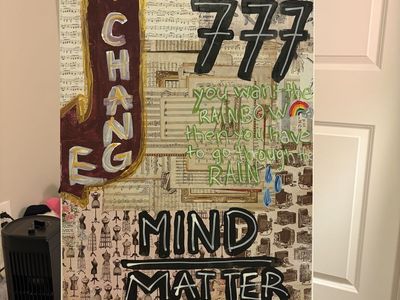 CHANGE
777
you want the
RAINBOW
then you'll have
to go through
RAIN
MIND
MATTER